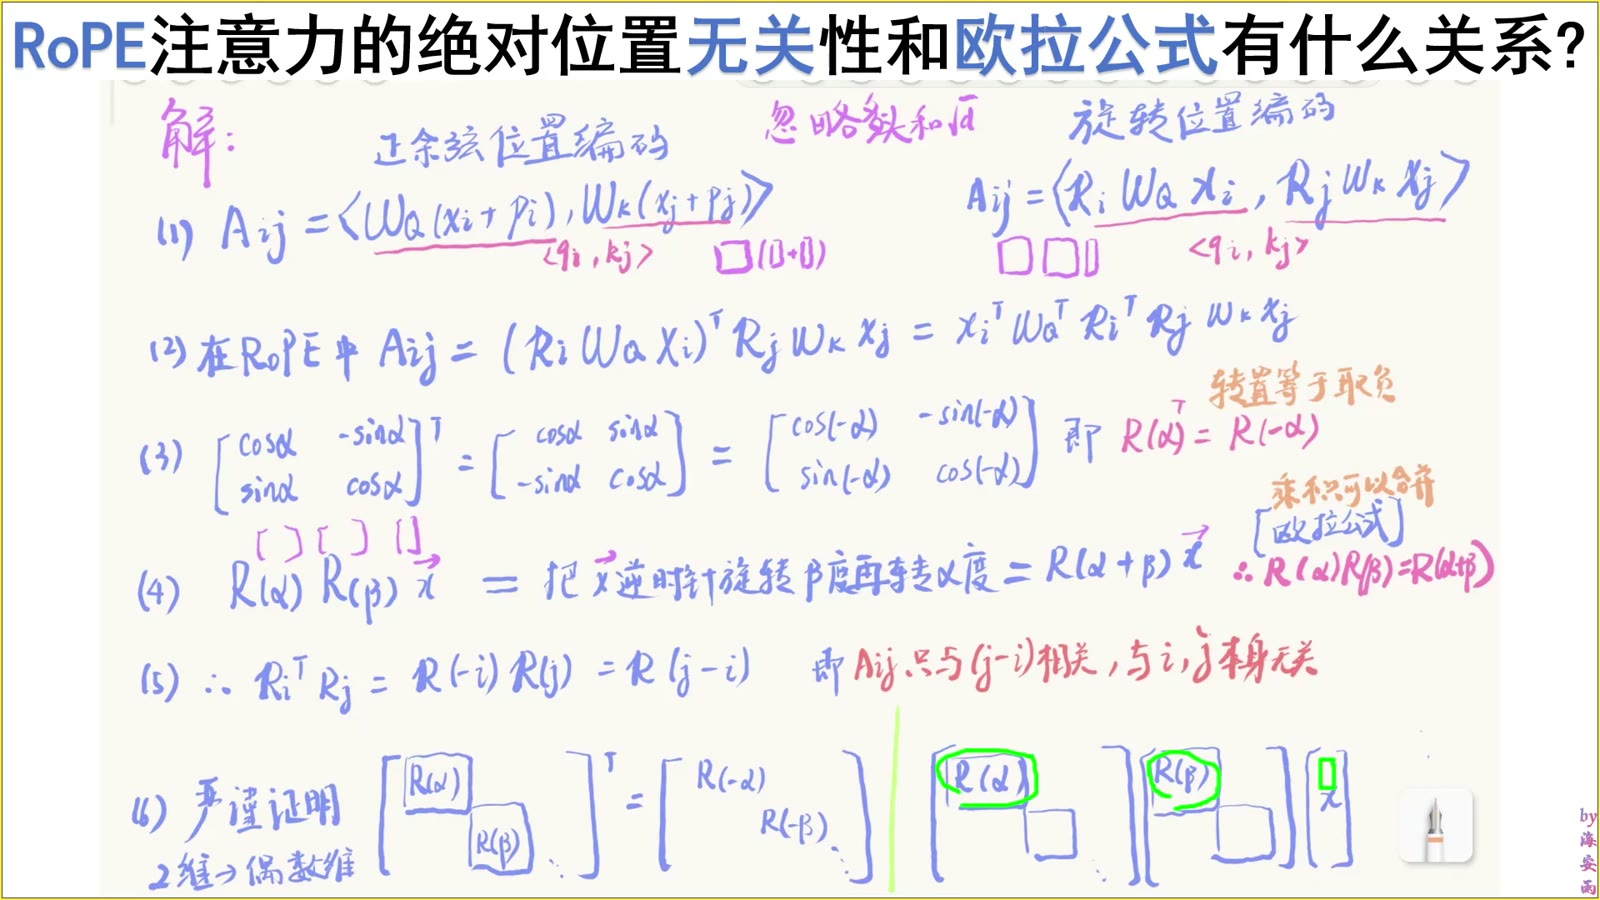 RoPE注意力的绝对位置无关性和欧拉公式有什么关系?
解: 正余弦位置编码 忽略多头和√d 旋转位置编码
(1) Aij = <WQ(xi+pi), WK(xj+pj)> Aij = <Ri WQ xi, Rj WK xj>
<qi, kj> □(▯+▯) □ □ ▯ <qi, kj>
(2) 在RoPE中 Aij = (Ri WQ Xi)^T Rj WK xj = xi^T WQ^T Ri^T Rj WK xj
转置等于取负
(3) [cosα -sinα; sinα cosα]^T = [cosα sinα; -sinα cosα] = [cos(-α) -sin(-α); sin(-α) cos(-α)] 即 R(α)^T = R(-α)
乘积可以合并
[ ] [ ] [ ] [欧拉公式]
(4) R(α) R(β) x⃗ = 把x⃗逆时针旋转β度再转α度 = R(α+β) x⃗ ∴R(α)R(β)=R(α+β)
(5) ∴ Ri^T Rj = R(-i) R(j) = R(j-i) 即 Aij只与(j-i)相关,与i,j本身无关
(6) 严谨证明 [R(α) R(β) ⋱]^T = [R(-α) R(-β) ⋱] [R(α)] [R(β)] [x]
2维→偶数维
by海安雨